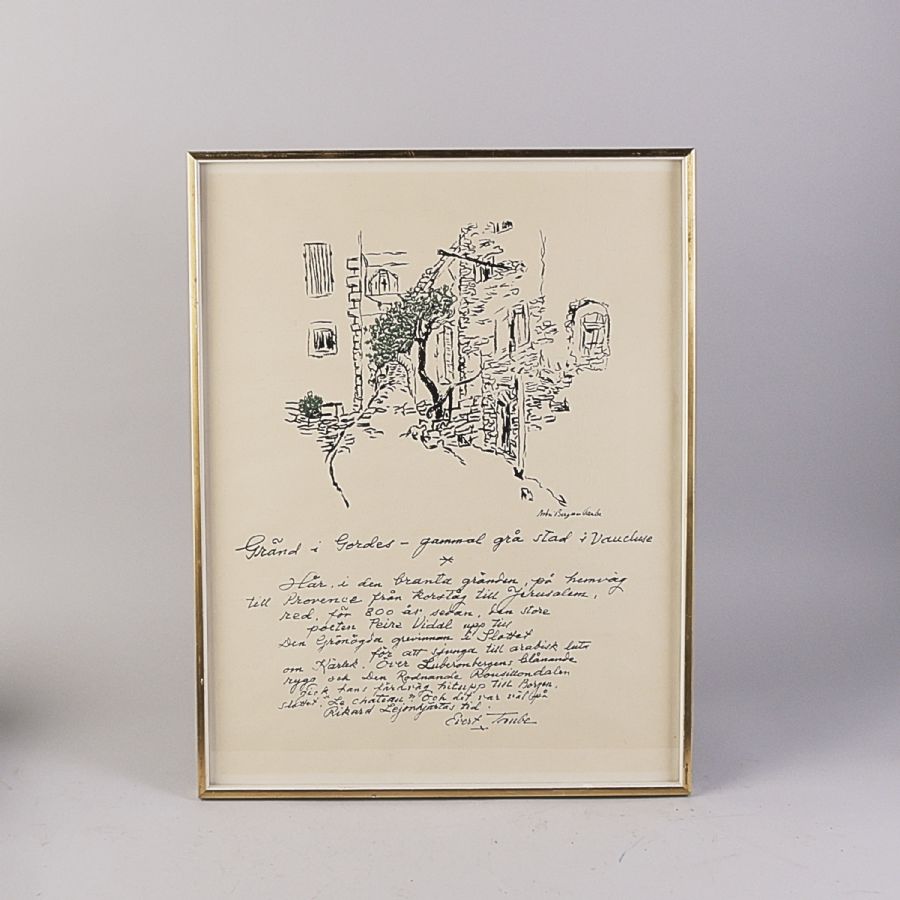 Astri Bergman Taube
Gränd i Gordes – gammal grå stad i Vaucluse
*
Här, i den branta gränden, på hemväg
till Provence från korståg till Jerusalem,
red, för 800 år sedan, den store
poeten Peire Vidal upp till
Den Grönögda grevinnan i Slottet
för att sjunga till arabisk luta
om Kärlek. Över Luberonbergens blånande
rygg och Den Rodnande Roussillondalen
gick hans färdväg hitupp till Borgen,
slottet "Le château". Och det var väl på
Rikard Lejonhjärtas tid.
Evert Taube